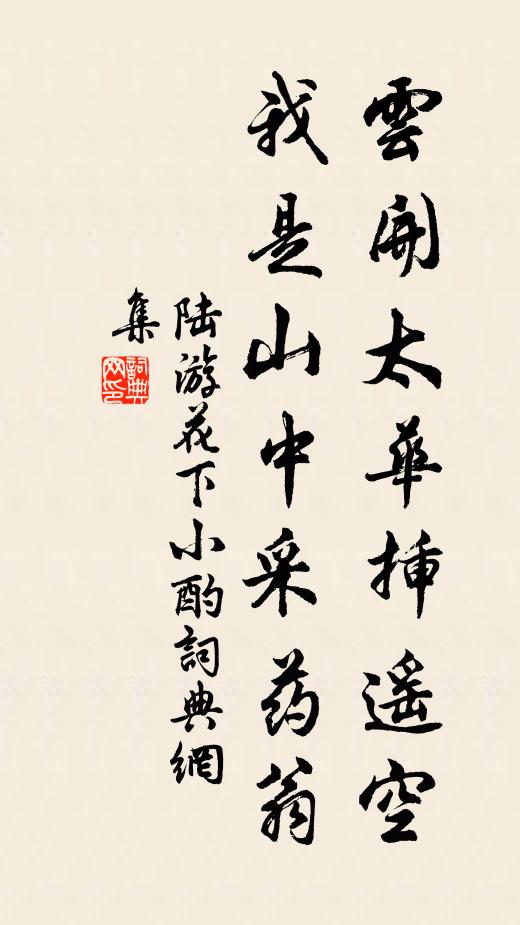 雲開太華插遥空
我是山中采药翁
陆游花下小酌詞典網
集
詞典网印